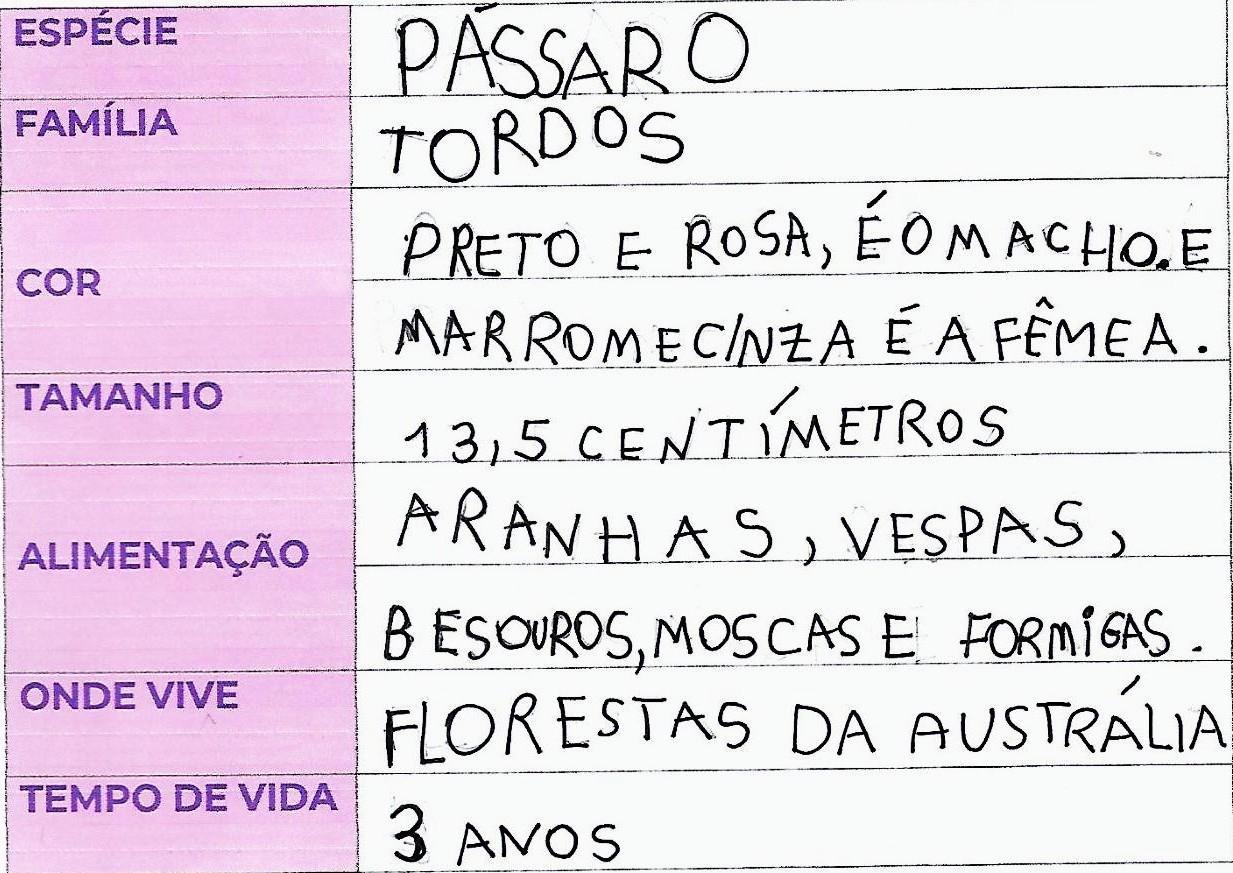 ESPÉCIE PÁSSARO
FAMÍLIA TORDOS
COR PRETO E ROSA, É O MACHO. E
MARROM E CINZA É A FÊMEA.
TAMANHO 13,5 CENTÍMETROS
ALIMENTAÇÃO ARANHAS, VESPAS,
BESOUROS, MOSCAS E FORMIGAS.
ONDE VIVE FLORESTAS DA AUSTRÁLIA
TEMPO DE VIDA 3 ANOS